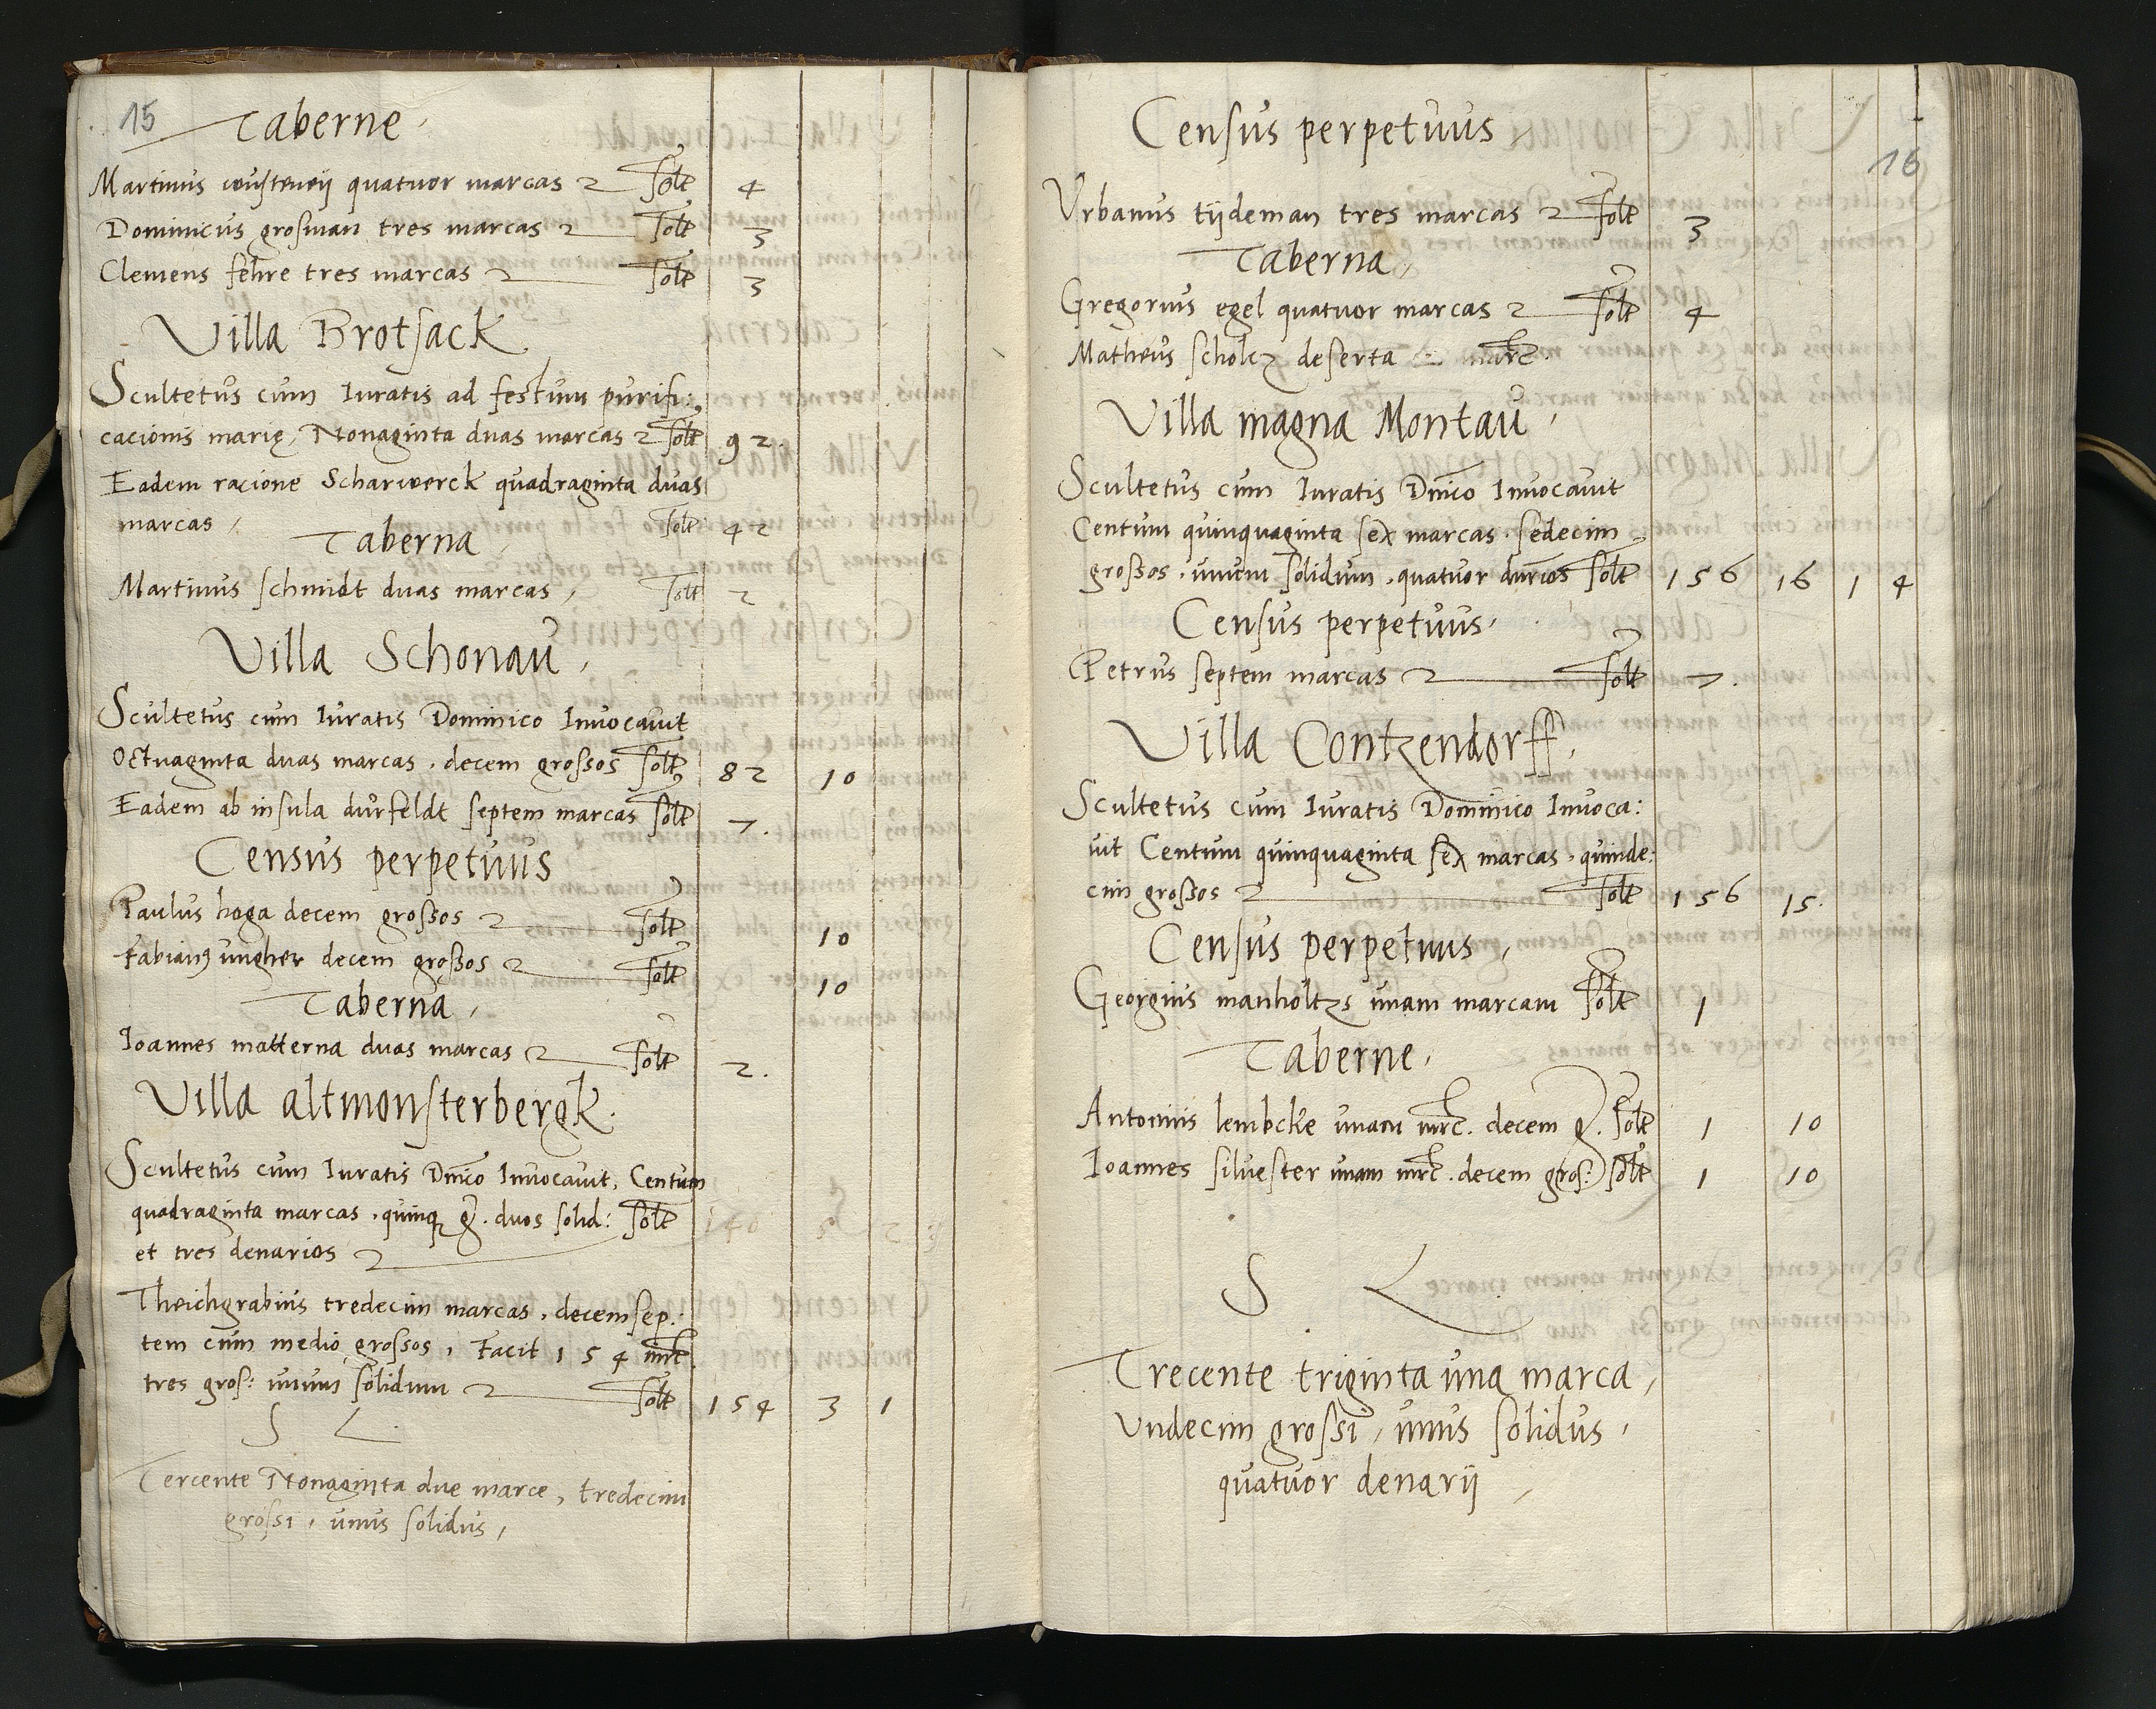 15
Taberne
Martinus quatuor marcas solt 4
Dominicus grosman tres marcas solt 3
Clemens fehre tres marcas solt 3
Villa Brotsack
Scultetus cum Iuratis ad festum purifi:
cacionis marię, Nonaginta duas marcas solt 92.
Eadem racione Scharwerck quadraginta duas
marcas, solt 42
Taberna,
Martinus schmidt duas marcas, solt 2
Villa Schonau,
Scultetus cum Iuratis Dominico Invocavit
Octuaginta duas marcas, decem grossos solt 82 10
Eadem ab insula dürfeldt septem marcas solt 7.
Census perpetuus
Paulus hoga decem groszos solt 10
Fabianꝰ ungher decem groszos solt 10
Taberna,
Ioannes matterna duas marcas solt 2.
Villa altmonsterbergk.
Scultetus cum Iuratis Dnico Invocavit, Centum
quadraginta marcas, quinq g. duos solid: solt 140 5 2 3
et tres denarios
Theichgrabius tredecim marcas, decemsep:
tem cum medio grossos, Facit 154 mrc
tres gros: unum solidum solt 154 3 1
S L
Tercente Nonaginta due marce, tredecim
grossi, unus solidus,
16
Census perpetuus
Vrbanus tijdeman tres marcas solt 3
Taberna,
Gregorius egel quatuor marcas solt 4
Matheus scholcz deserta marc.
Villa magna Montau,
Scultetus cum Iuratis Dnico Invocavit
Centum quinquaginta sex marcas, sedecim
groszos, unum solidum, quatuor durios solt 156 16 1 4
Census perpetuus.
Petrus septem marcas solt 7.
Villa Contzendorff,
Scultetus cum Iuratis Dominico Invoca:
vit Centum quinquaginta sex marcas, quinde:
cim groszos solt 156 15.
Census perpetuus,
Georgius manholtzs unam marcam solt 1
Taberne,
Antonius lembcke unam mrc. decem g. solt 1 10
Ioannes silvester unam mrc. decem gros: solt 1 10
S L
Trecente triginta una marca,
Vndecim grossi, unus solidus,
quatuor denarij